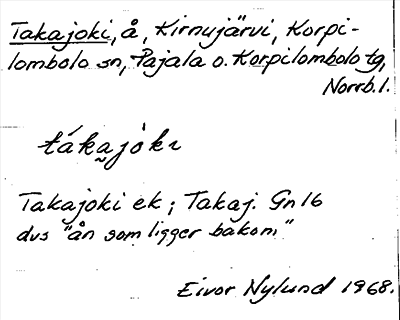 Takajoki, å, Kirnujärvi, Korpi-
lombolo sn, Pajala o. Korpilombolo tg,
Norrb. l.
tákajòkı
Takajoki ek ; Takaj. Gn 16
dvs "ån som ligger bakom"
Eivor Nylund 1968.